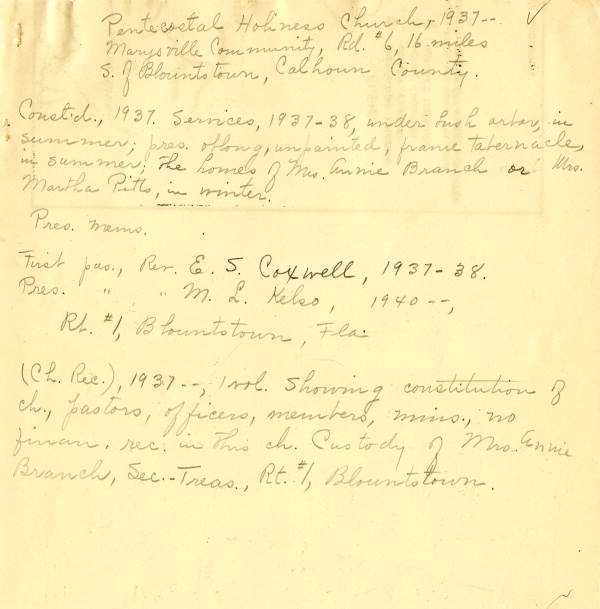 Pentecostal Holiness Church, 1937-- ✓
Marysville Community, Rd. #6, 16 miles
S. of Blountstown, Calhoun County.
Const'd., 1937. Services, 1937-38, under bush arbor, in
summer; pres. oblong, unpainted, frame tabernacle,
in summer; the homes of Mrs. Annie Branch or Mrs.
Martha Pitts, in winter.
Pres. mems.
First pas., Rev. E. S. Coxwell, 1937-38.
Pres. " " M. L. Kelso, 1940--,
Rt. #1, Blountstown, Fla.
(Ch. Rec.), 1937--, 1 vol. Showing constitution of
ch., pastors, officers, members, mins., no
finan. rec. in this ch. Custody of Mrs. Annie
Branch, Sec.-Treas., Rt. #1, Blountstown.